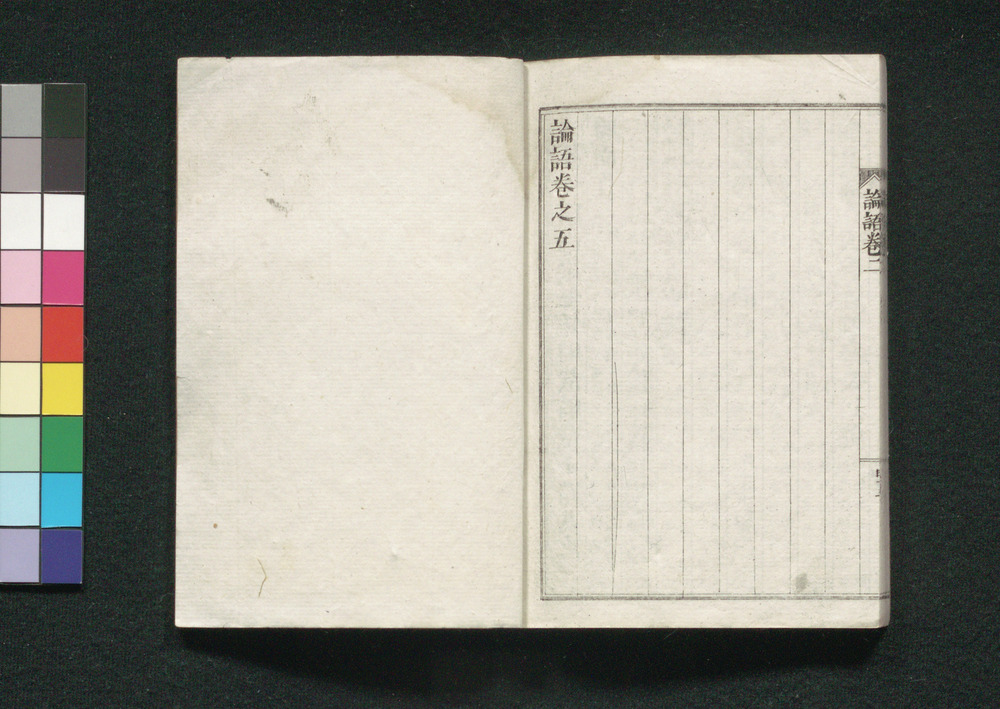 論語卷二
論語卷之五